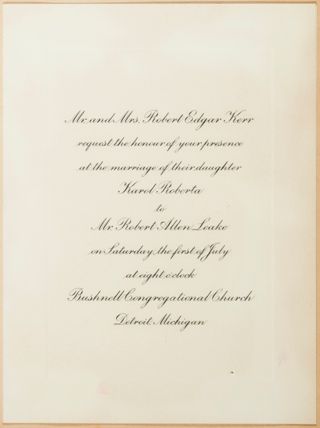 Mr. and Mrs. Robert Edgar Kerr
request the honour of your presence
at the marriage of their daughter
Karol Roberta
to
Mr. Robert Allen Leake
on Saturday, the first of July
at eight o'clock
Bushnell Congregational Church
Detroit, Michigan